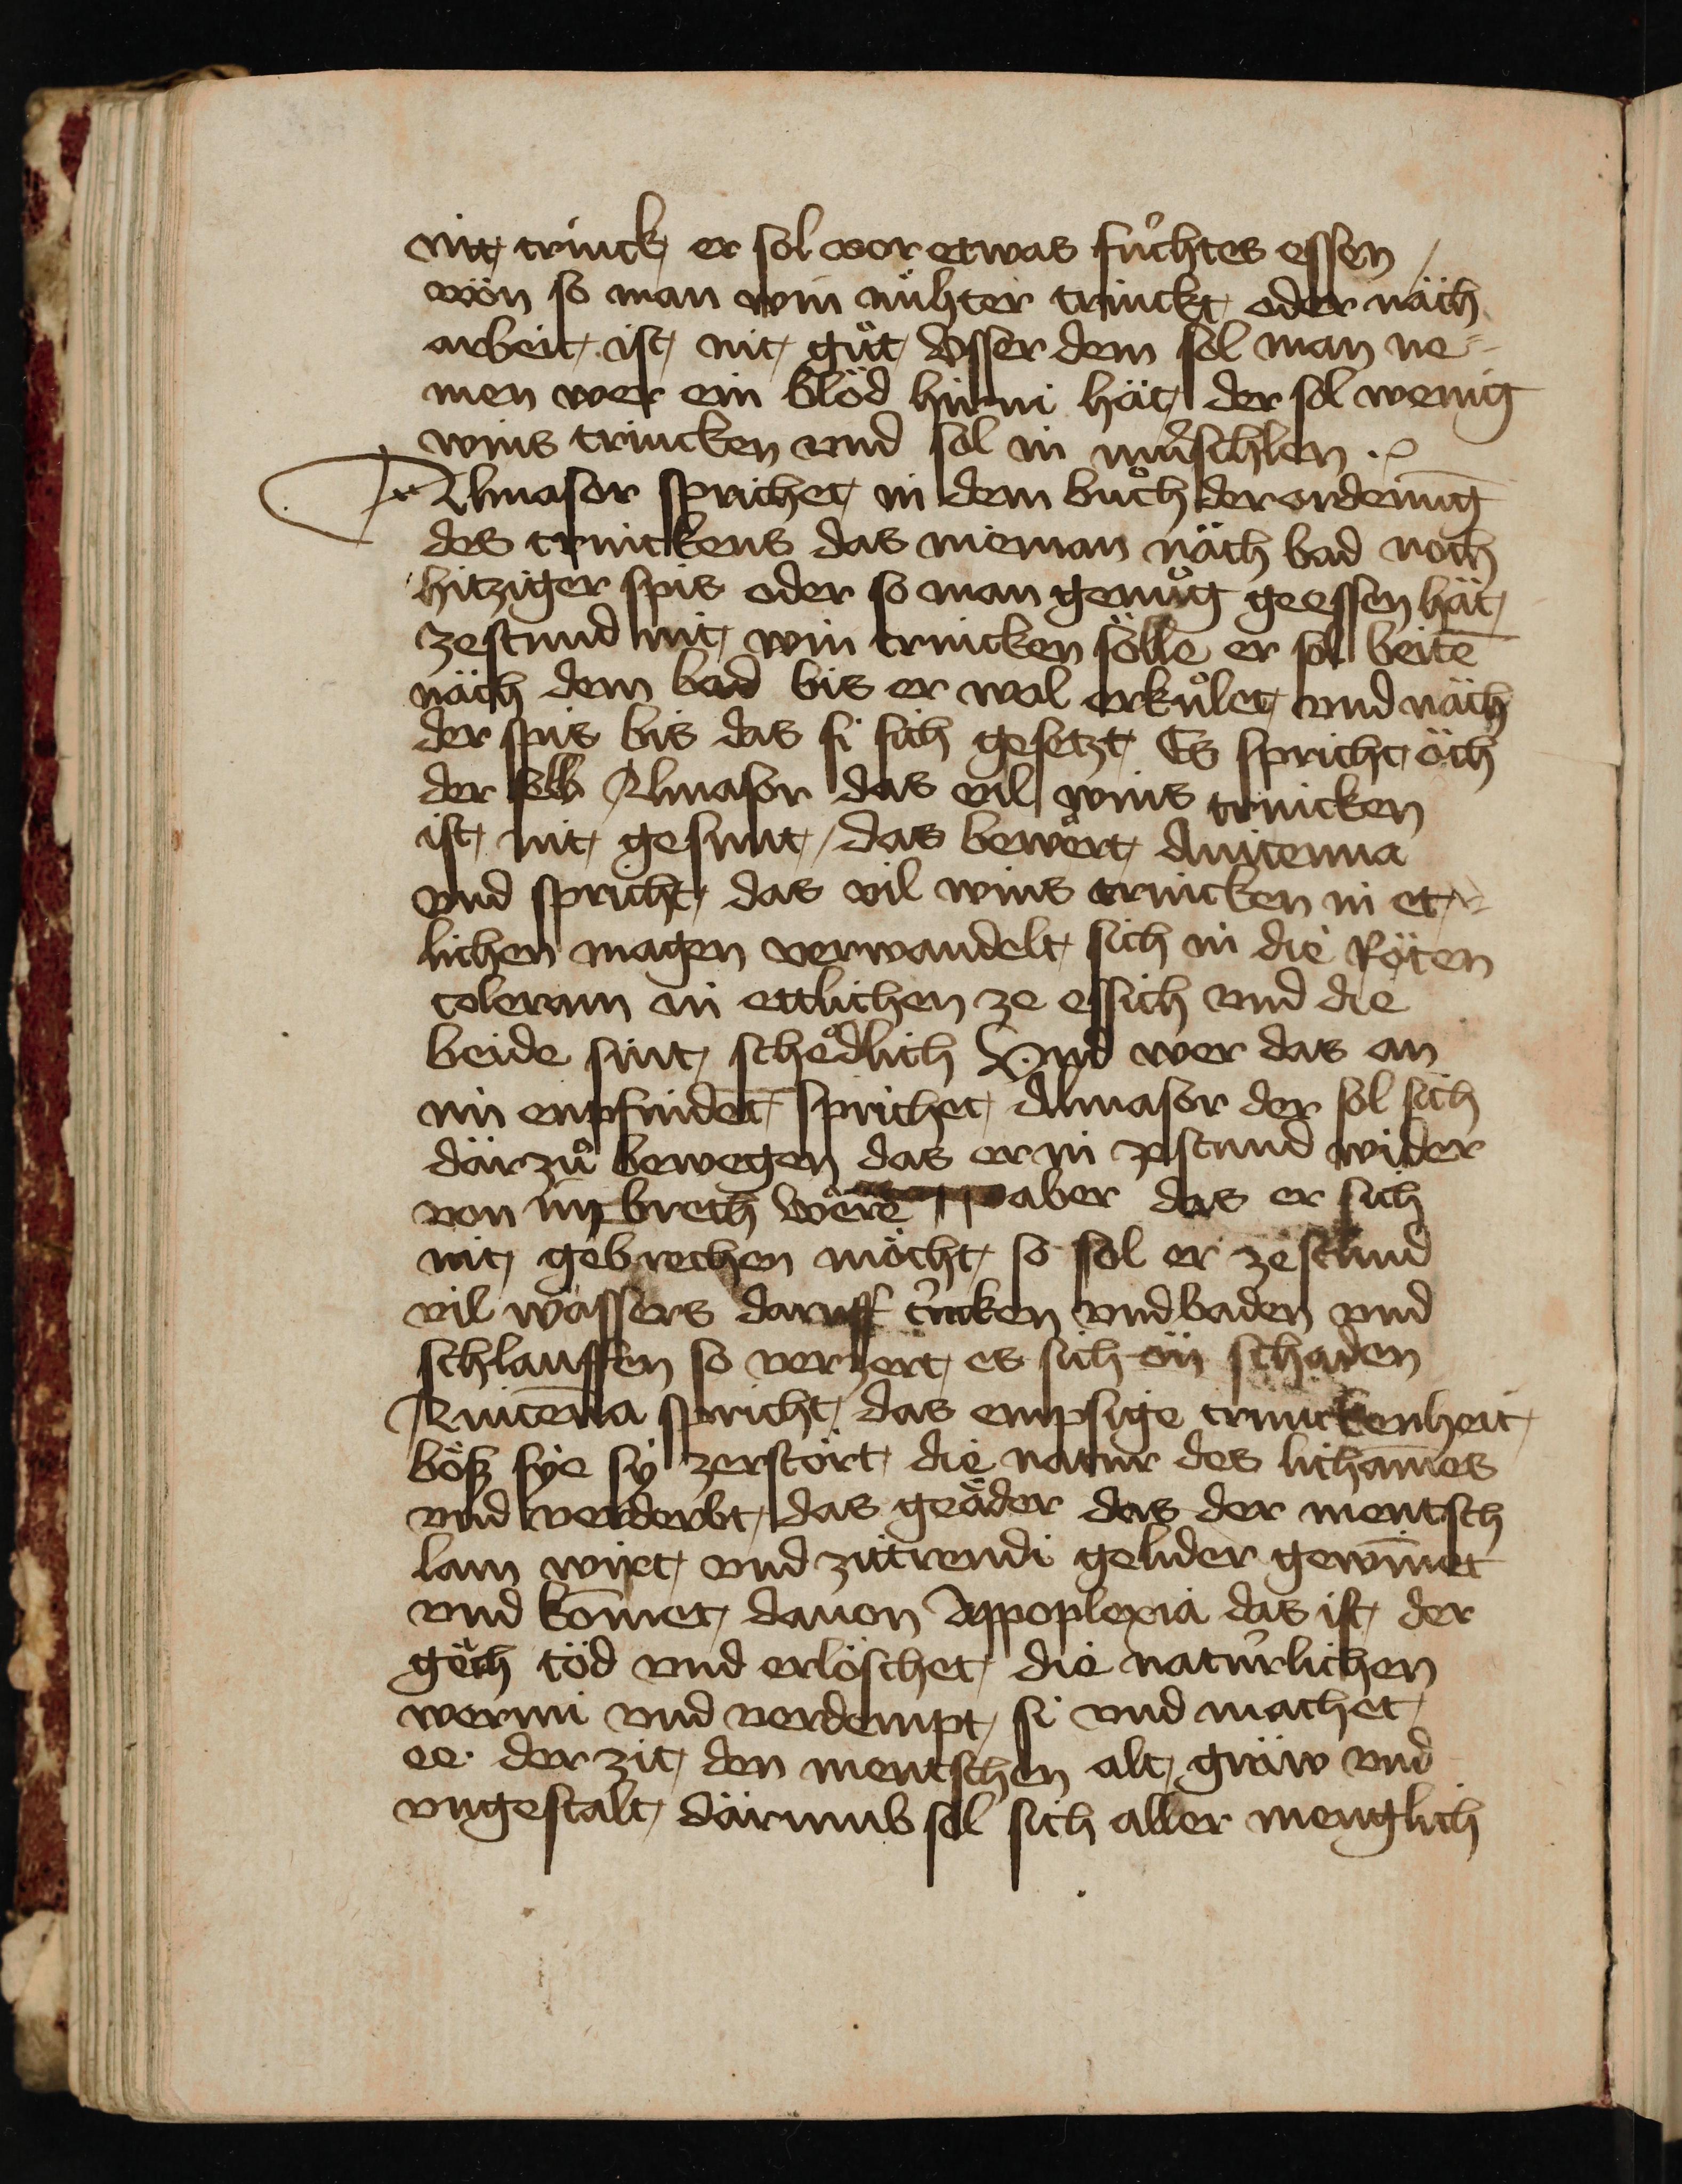 nit trinck er sol vor etwas fu̍chtes essen /
wön so man win nu̍hter trinckt oder näch
arbeit ist nit gůt Vsser dem sol man ne=
men wer ein blöd hirni hät der sol wenig
wins trincken vnd sol in mu̍schlen .
Almasor sprichet in dem bůch der ordenung
des trinckens das nieman näch bad noch
hitziger spis oder so man genůg geessen hät
zestund nit win trincken sölle er sol beitē
näch dem bad bis er wol erkůlet vnd näch
der spis bis das si sich gesetzt Es spricht öch
der selb Almasor das vil wins trincken
ist nit gesunt / das bewert Auicenna
vnd spricht das vil wins trincken in et=
lichen magen verwandelt sich in die Röten
coleram in ettlichen ze essich vnd die
beide sint schedlich Vnd wer das an
im enpfindet sprichet Almasor der sol sich
därzů bewegen das er in zestund wider
von im brech were aber das er sich
nit gebrechen möcht so sol er zestund
vil wassers daruff tricken vnd baden vnd
schlauffen so verzert es sich ön schaden
Auicēna spricht das empsige trinckenheit
böß sÿe sÿ zerstört die natur des lichames
vnd verderbt das geäder das der mentsch
lam wirt vnd zittrendi gelider gewinnet
vnd komet dauon Appoplexia das ist der
gech töd vnd erlöschet die natu̍rlichen
wermi vnd verdempt si vnd machet
ee der zit den mentschen alt gräw vnd
vngestalt därumb sol sich aller menglich